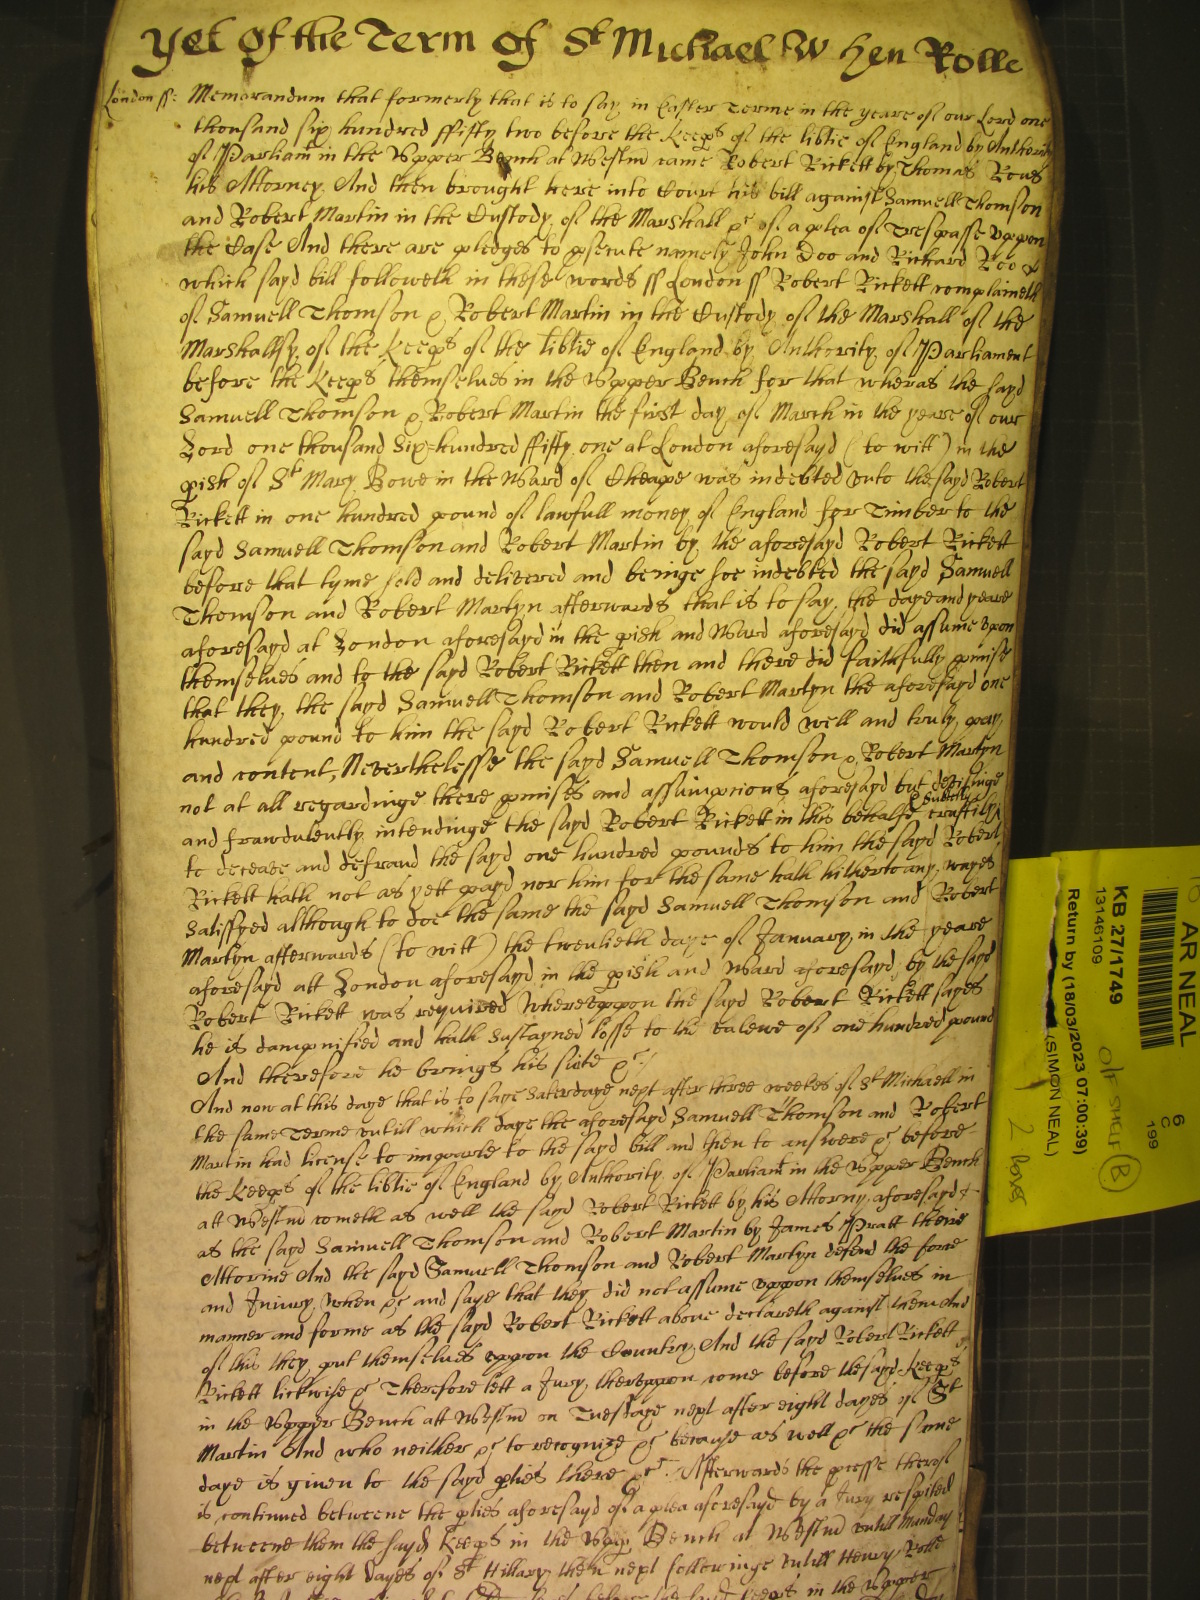 Yet Of the Term Of St Michael When Rolle
London ss: Memorandum that formerly that is to say in Easter Terme in the yeare of our Lord one
thousand six hundred ffifty two before the Keeps of the libtie of England by Authority
of Parliamt in the Upper Bench at Westmr came Robert Rickett by Thomas Rous
his Attorney. And then brought here into Court his bill against Samuell Thomson
and Robert Martin in the Custody of the Marshall &c of a plea of Trespasse uppon
the Case And there are pledges to psecute namely John Doo and Richard Roo &
which sayd bill followeth in these words ss London ss Robert Rickett complaineth
of Samuell Thomson & Robert Martin in the Custody of the Marshall of the
Marshallsy of the Keeps of the libtie of England by Authority of Parliament
before the Keeps themselves in the Upper Bench for that wheras the sayd
Samuell Thomson & Robert Martin the first day of March in the yeare of our
Lord one thousand Six=hundred ffifty one at London aforesayd (to witt) in the
pish of St Mary Bowe in the Ward of Cheape was indebted unto the sayd Robert
Rickett in one hundred pound of lawfull money of England for Timber to the
sayd Samuell Thomson and Robert Martin by the aforesayd Robert Rickett
before that tyme sold and delivered and beinge soe indebted the sayd Samuell
Thomson and Robert Martyn afterwards that is to say, the daye and yeare
aforesayd at London aforesayd in the pish and Ward aforesayd did assume upon
themselves and to the sayd Robert Rickett then and there did faithfully pmise
that they the sayd Samuell Thomson and Robert Martyn the aforesayd one
hundred pound to him the sayd Robert Rickett would well and truly pay
and content, Neverthelesse the sayd Samuell Thomson & Robert Martyn
not at all regardinge there pmises and assumpcions aforesayd but devisinge
and frawdulently intendinge the sayd Robert Rickett in this behalfe craftily & subtilly
to deceave and defraud the sayd one hundred pounds to him the sayd Robert
Rickett hath not as yett payd nor him for the same hath hitherto any wayes
Satisfyed although to doe the same the sayd Samuell Thomson and Robert
Martyn afterwards (to witt) the twentieth daye of January in the yeare
aforesayd att London aforesayd in the pish and Ward aforesayd by the sayd
Robert Rickett was required Whereuppon the sayd Robert Rickett sayes
he is dampnified and hath Sustayned losse to the valewe of one hundred pound
And therefore he brings his suite &c
And now at this daye that is to saye Saterdaye next after three weekes of St Michaell in
the same Terme untill which daye the aforesayd Samuell Thomson and Robert
Martin had license to imparle to the sayd bill and then to answere &c before
the Keeps of the libtie of England by Authority of Parliamt in the Upper Bench
att Westmr cometh as well the sayd Robert Rickett by his Attorny aforesayd
as the sayd Samuell Thomson and Robert Martin by James Pratt theire
Attornie And the sayd Samuell Thomson and Robert Martyn defend the force
and Iniury when &c and saye that they did not assume uppon themselves in
manner and forme as the sayd Robert Rickett above declareth against them And
of this they put themselves uppon the Country And the sayd Robert Rickett
Rickett lickwise &c Therefore lett a Jury thereuppon come before the sayd Keeps
in the Upper Bench att Westmr on Tuesdaye next after eight dayes of St
Martin And who neither &c to recognize &c because as well &c the same
daye is given to the sayd pties there &c. Afterwards the pcesse thereof
is continued betweene the pties aforesayd of a plea aforesayd by a Jury respited
betweene them the sayd Keeps in the Upp Bench at Westmr untill Munday
next after eight Dayes of St Hillary then next followinge untill Henry Rolle
before the sayd Keeps in the Upper
AR NEAL
6
C
199
KB 27/1749
13146109
Return by (18/03/2023 07:00:39)
(SIMON NEAL)
O/F SHELF B
2 boxes